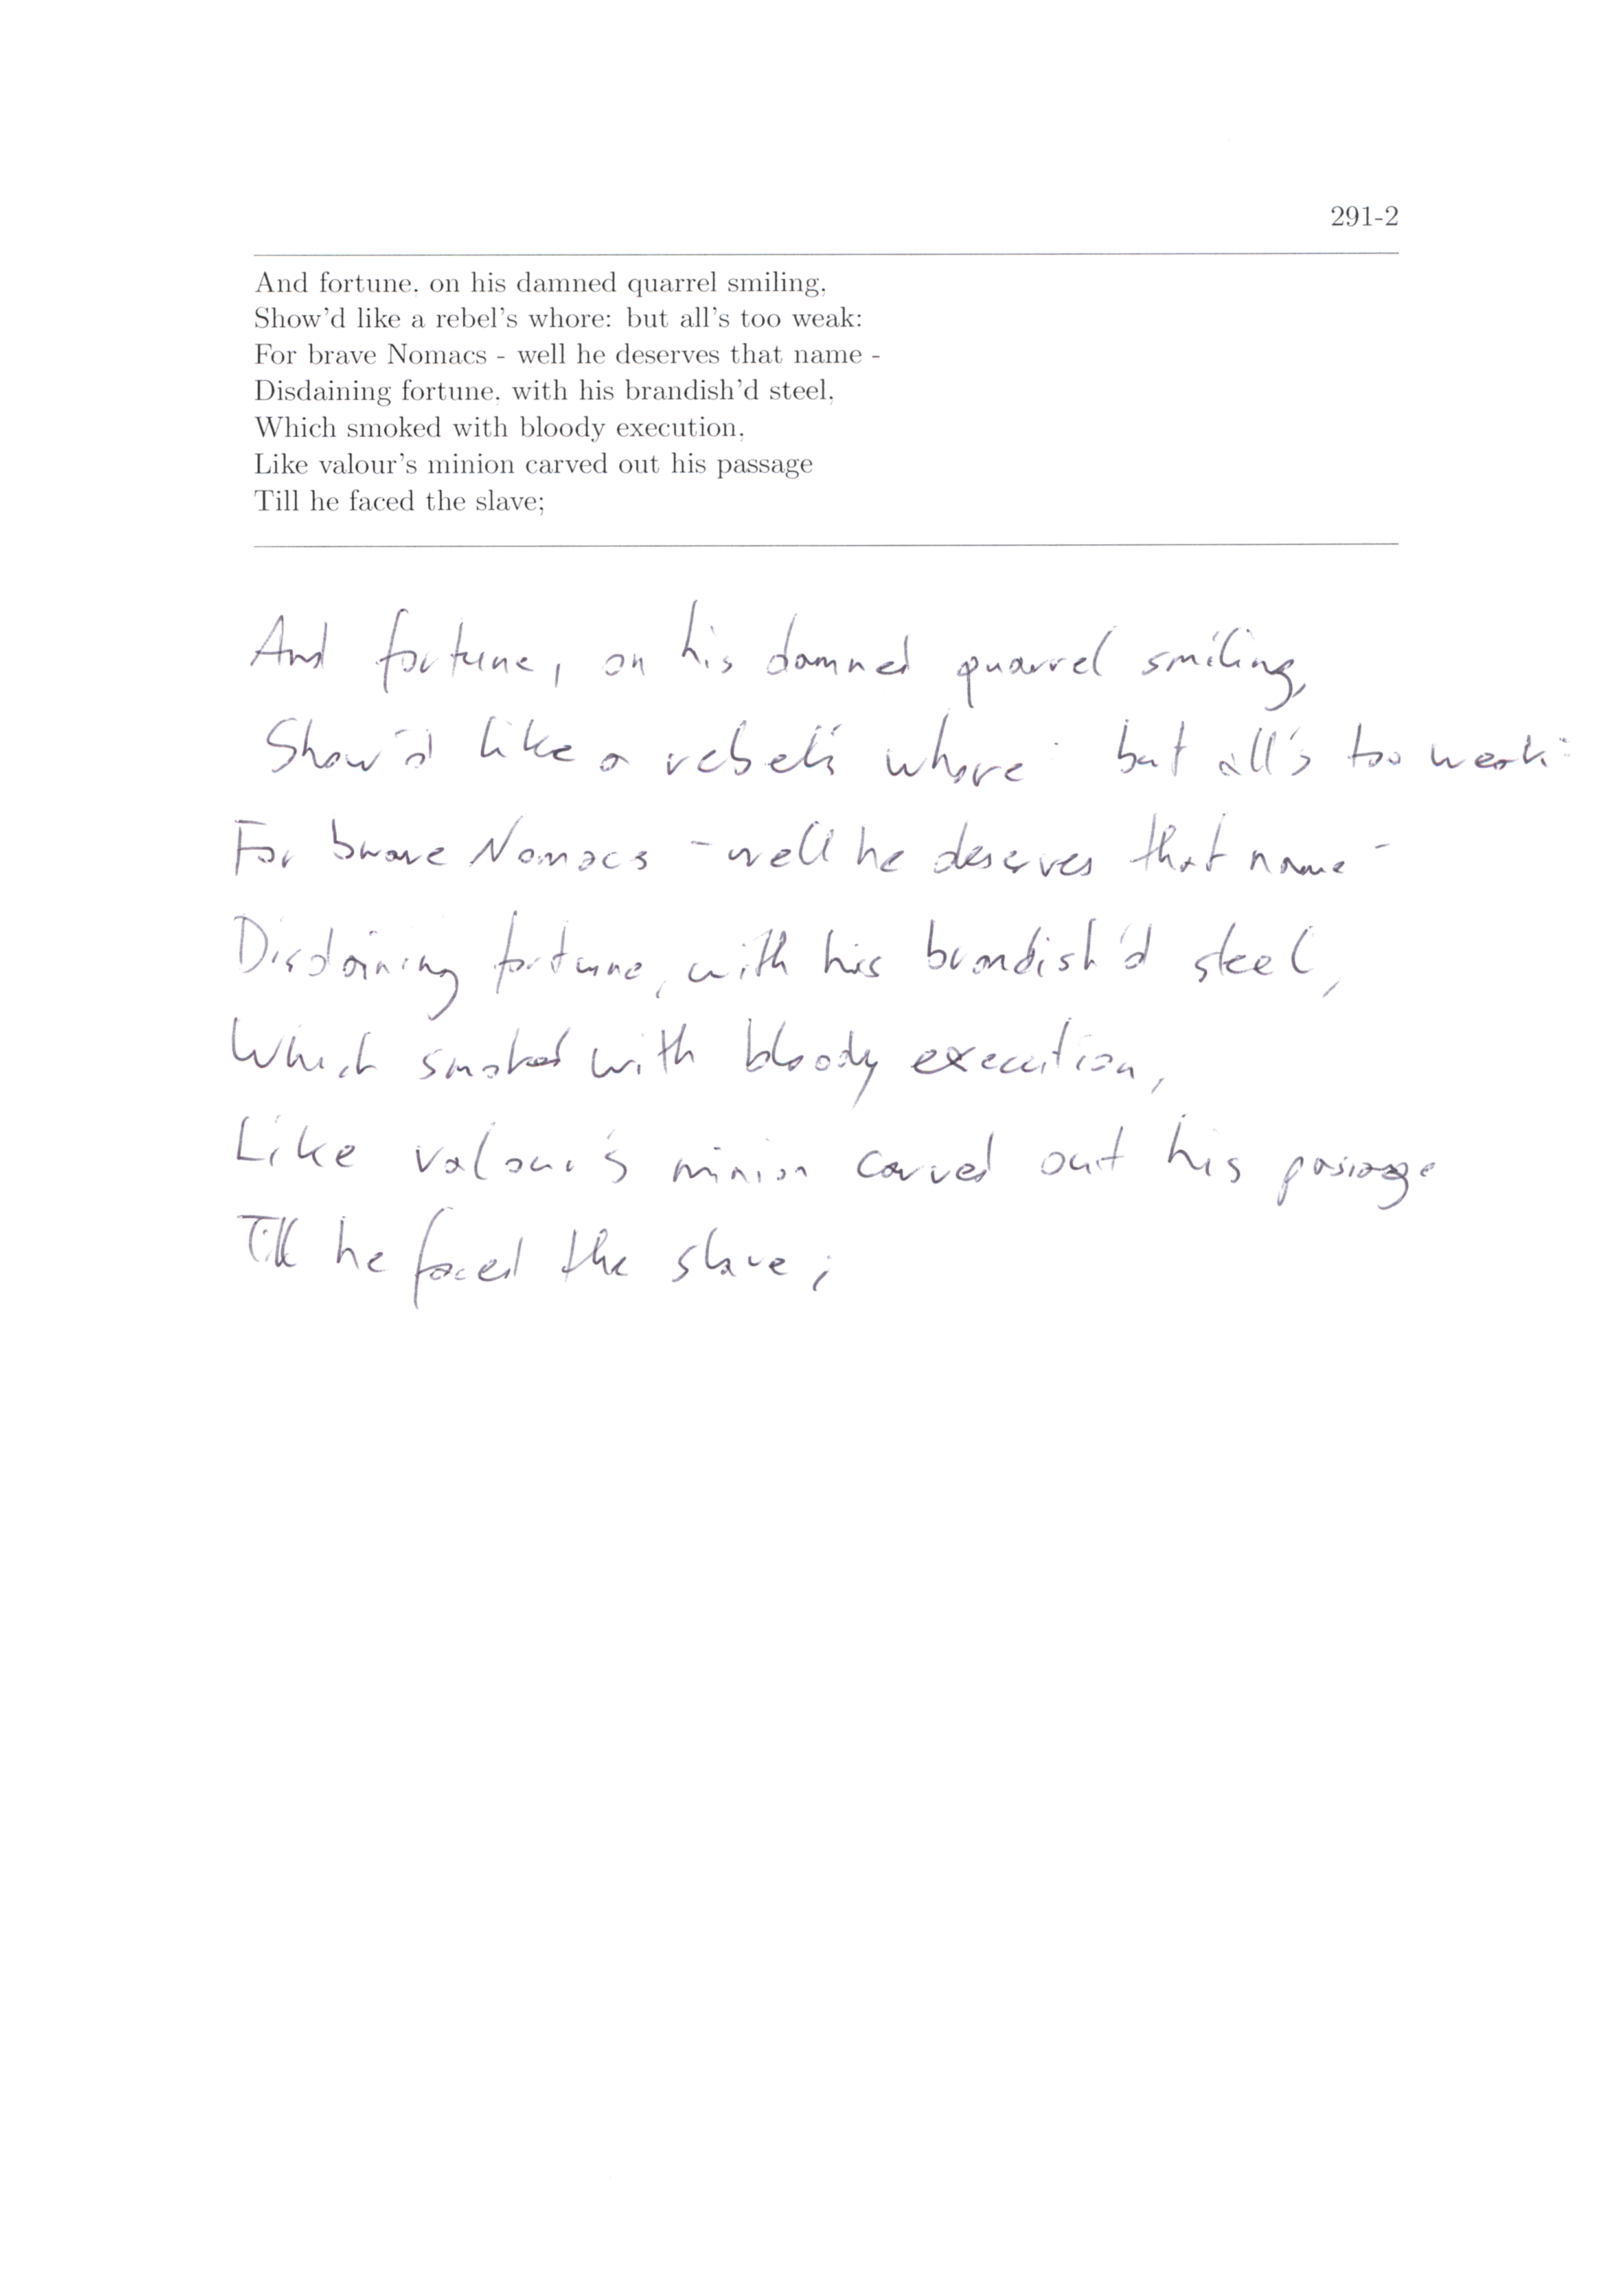 291-2
And fortune, on his damned quarrel smiling,
Show'd like a rebel's whore: but all's too weak:
For brave Nomacs - well he deserves that name -
Disdaining fortune, with his brandish'd steel,
Which smoked with bloody execution,
Like valour's minion carved out his passage
Till he faced the slave;
And fortune, on his damned quarrel smiling,
Show'd like a rebel's whore: but all's too weak:
For brave Nomacs - well he deserves that name -
Disdaining fortune, with his brandish'd steel,
Which smoked with bloody execution,
Like valour's minion carved out his passage
Till he faced the slave;